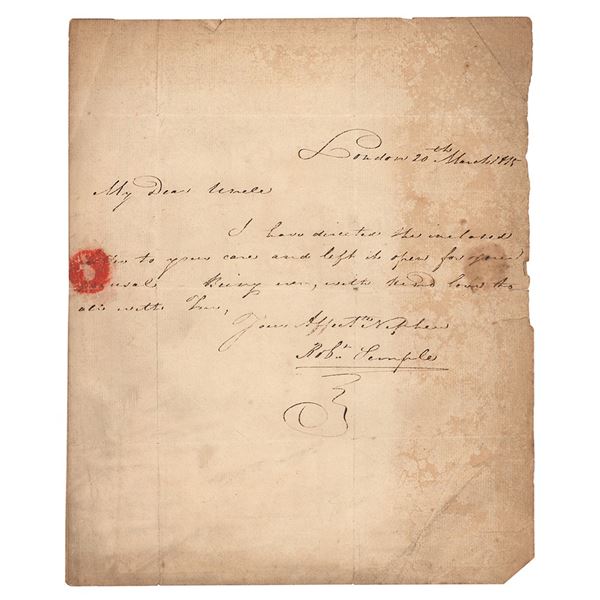 London 20th March 1815
My Dear Uncle
I have directed the inclosed
to your care and left it open for your
perusal. Being ever, with kind love to
all with
Your Affectte Nephew
Robt Semple